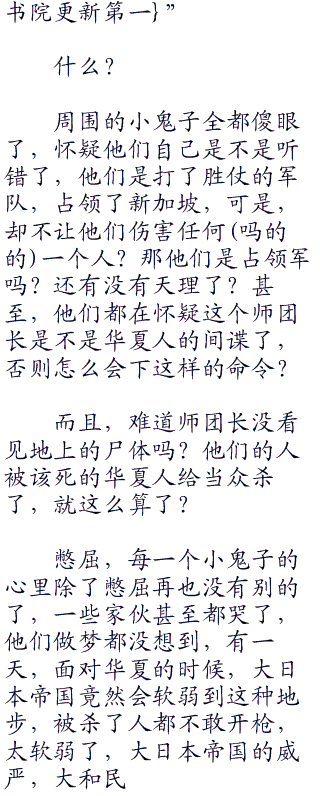 书院更新第一}”
什么？
周围的小鬼子全都傻眼
了，怀疑他们自己是不是听
错了，他们是打了胜仗的军
队，占领了新加坡，可是，
却不让他们伤害任何(吗的
的)一个人？那他们是占领军
吗？还有没有天理了？甚
至，他们都在怀疑这个师团
长是不是华夏人的间谍了，
否则怎么会下这样的命令？
而且，难道师团长没看
见地上的尸体吗？他们的人
被该死的华夏人给当众杀
了，就这么算了？
憋屈，每一个小鬼子的
心里除了憋屈再也没有别的
了，一些家伙甚至都哭了，
他们做梦都没想到，有一
天，面对华夏的时候，大日
本帝国竟然会软弱到这种地
步，被杀了人都不敢开枪，
太软弱了，大日本帝国的威
严，大和民